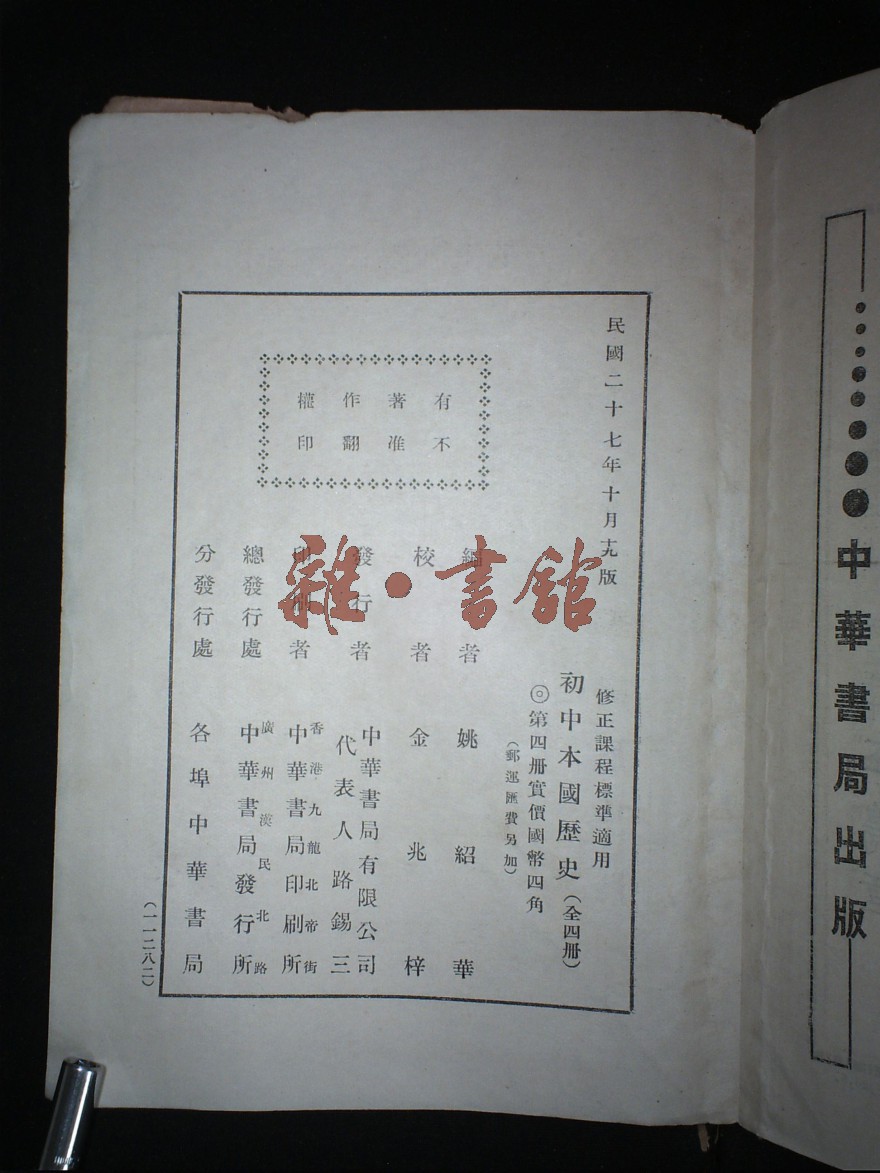 中華書局出版
民國二十七年十月十九版
修正課程標準適用
初中本國歷史（全四册）
◎第四册實價國幣四角
（郵運匯費另加）
有著作權
不准翻印
編者 姚紹華
校者 金兆梓
發行者 中華書局有限公司
代表人路錫三
印刷者 香港九龍北帝街
中華書局印刷所
總發行處 廣州漢民北路
中華書局發行所
分發行處 各埠中華書局
（一一二八二）
雜·書館